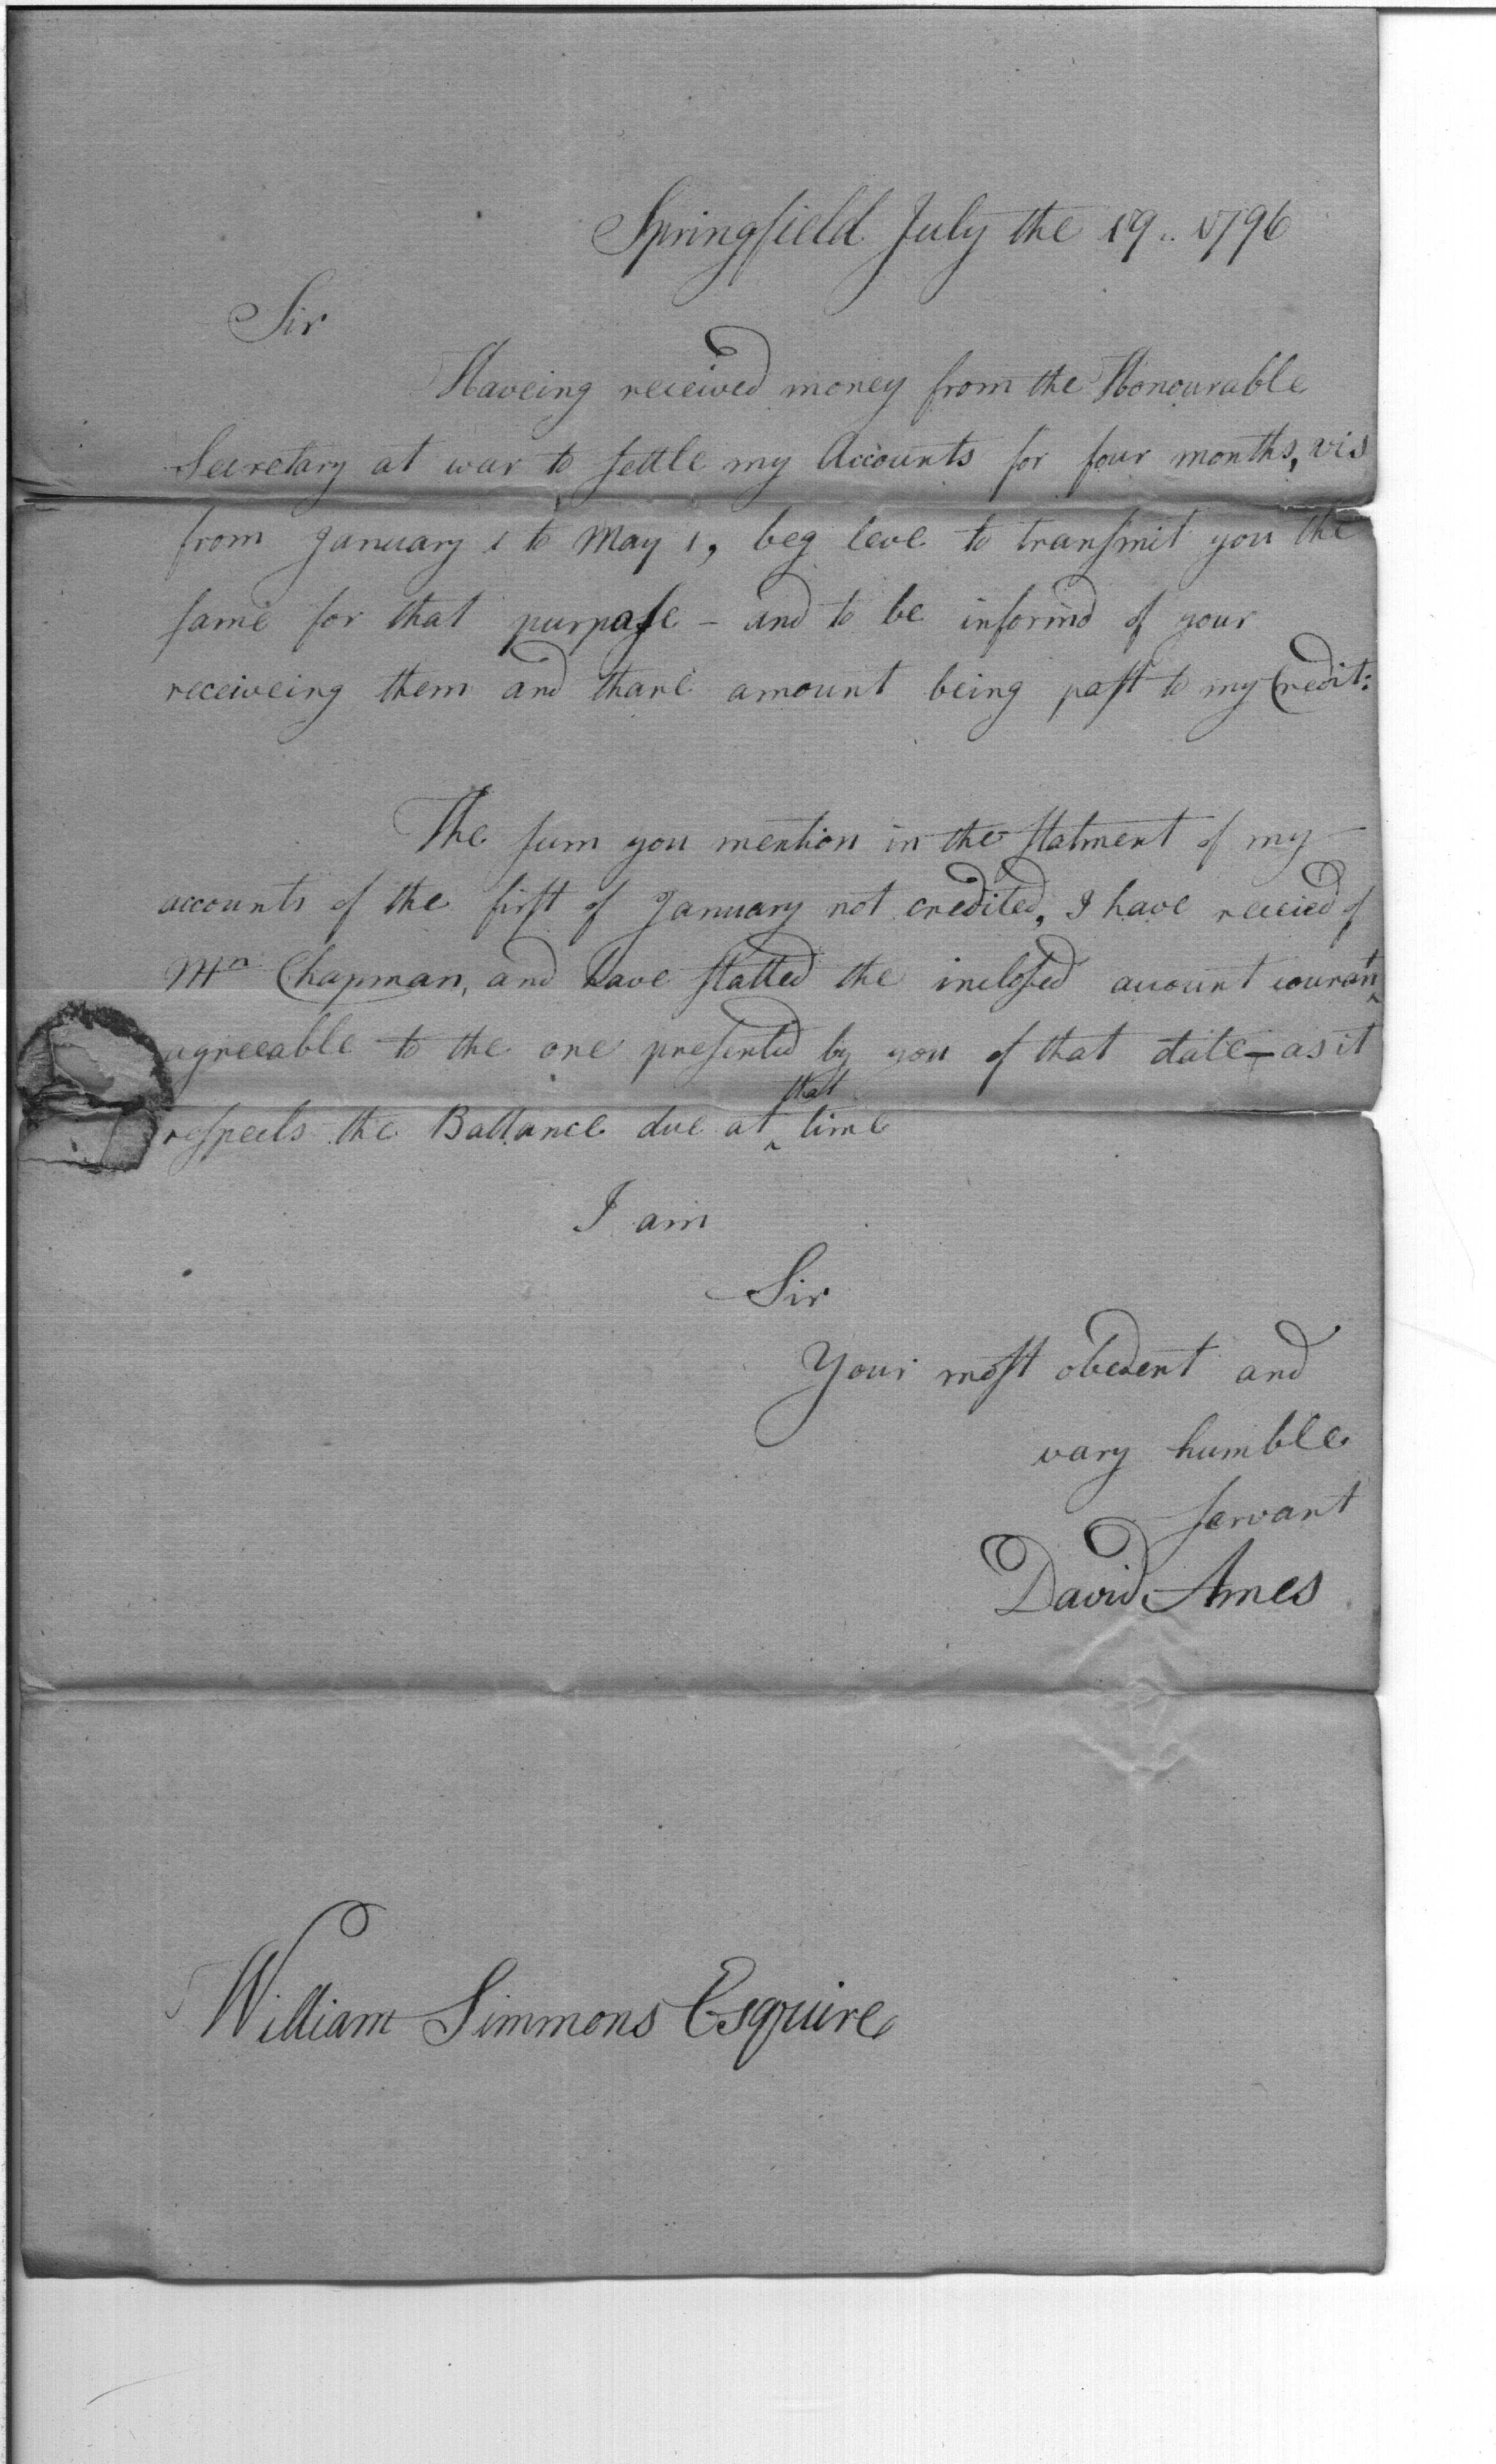 Springfield July the 19.. 1796
Sir
Haveing received money from the Honourable
Secretary at war to settle my Accounts for four months, vis
from January 1 to May 1, beg leve to transmit you the
same for that purpose – and to be informd of your
receiveing them and thare amount being past to my Credit:
The sum you mention in the statment of my
accounts of the first of January not credited, I have receied of
Mr Chapman, and have statted the inclosed account courant
agreeable to the one presented by you of that date – as it
respects the Ballance due at ^ that time
I am
Sir
Your most obedent and
vary humble
servant
David Ames
William Simmons Esquire